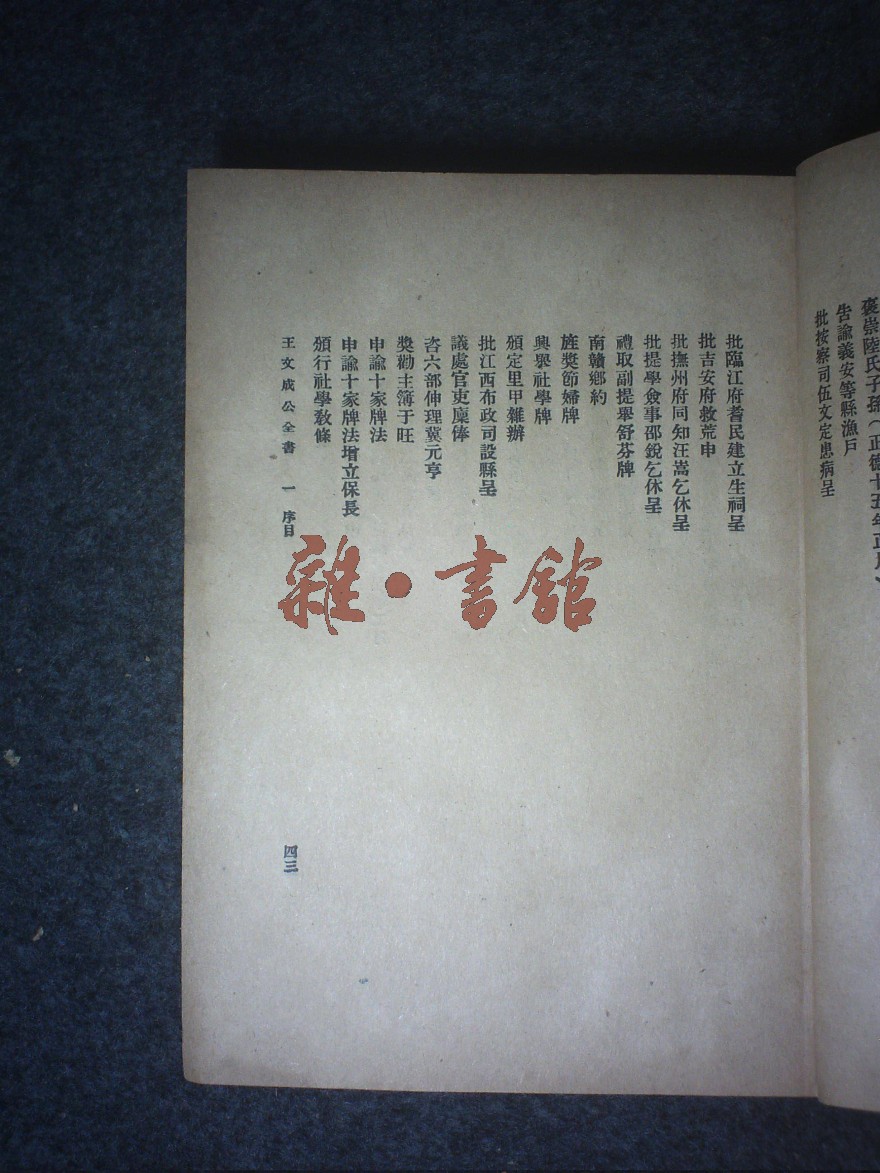 褒崇陸氏子孫（正德十五年正月）
告諭義安等縣漁戶
批按察司伍文定患病呈
批臨江府耆民建立生祠呈
批吉安府救荒申
批撫州府同知汪嵩乞休呈
批提學僉事邵銳乞休呈
禮取副提舉舒芬牌
南贛鄉約
旌獎節婦牌
興舉社學牌
頒定里甲雜辦
批江西布政司設縣呈
議處官吏廩俸
咨六部伸理冀元亨
獎勸主簿于旺
申諭十家牌法
申諭十家牌法增立保長
頒行社學敎條
王文成公全書 一 序目
四三
雜·書館